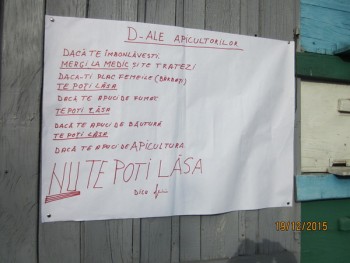 D-ALE APICULTORILOR
DACĂ TE ÎMBOLNĂVEȘTI
MERGI LA MEDIC SI TE TRATEZI
DACA-TI PLAC FEMEILE (BĂRBAȚI)
TE POTI LĂSA
DACĂ TE APUCI DE FUMAT
TE POTI LĂSA
DACĂ TE APUCI DE BĂUTURĂ
TE POTI LĂSA
DACĂ TE APUCI DE APICULTURA
NU TE POTI LĂSA
19/12/2015